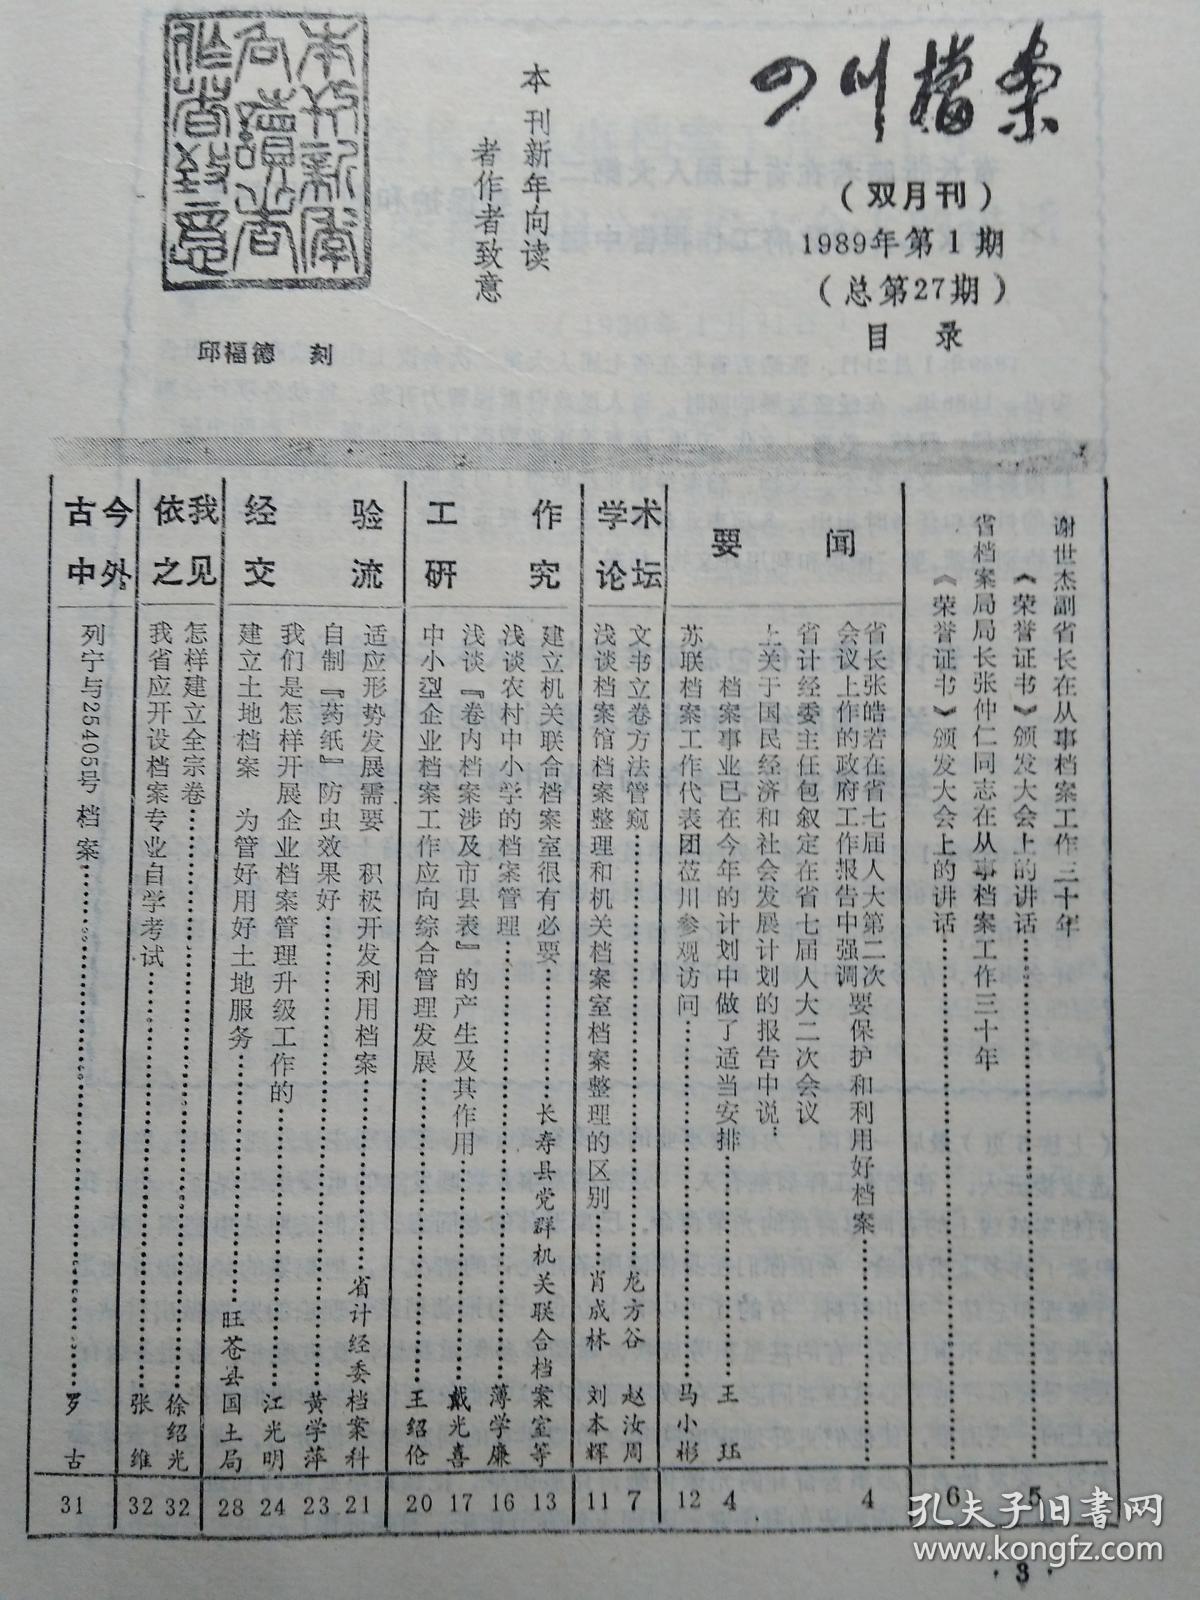 四川档案
（双月刊）
1989年第1期
（总第27期）
目 录
本刊新年向读
者作者致意
邱福德 刻
谢世杰副省长在从事档案工作三十年
《荣誉证书》颁发大会上的讲话……5
省档案局局长张仲仁同志在从事档案工作三十年
《荣誉证书》颁发大会上的讲话……6
要 闻
省长张皓若在省七届人大第二次
会议上作的政府工作报告中强调 要保护和利用好档案……4
省计经委主任包叙定在省七届人大二次会议
上关于国民经济和社会发展计划的报告中说：
档案事业已在今年的计划中做了适当安排……王 珏 4
苏联档案工作代表团莅川参观访问……马小彬 12
学术
论坛
文书立卷方法管窥……龙方谷 赵汝周 7
浅谈档案馆档案整理和机关档案室档案整理的区别……肖成林 刘本辉 11
工作
研究
建立机关联合档案室很有必要……长寿县党群机关联合档案室等 13
浅谈农村中小学的档案管理……薄学廉 16
浅谈『卷内档案涉及市县表』的产生及其作用……戴光喜 17
中小型企业档案工作应向综合管理发展……王绍伦 20
经验
交流
适应形势发展需要 积极开发利用档案……省计经委档案科 21
自制『药纸』防虫效果好……黄学萍 23
我们是怎样开展企业档案管理升级工作的……江光明 24
建立土地档案 为管好用好土地服务……旺苍县国土局 28
依我
之见
怎样建立全宗卷……徐绍光 32
我省应开设档案专业自学考试……张 维 32
古今
中外
列宁与25405号档案……罗 古 31
·3·
孔夫子旧书网
www.kongfz.com